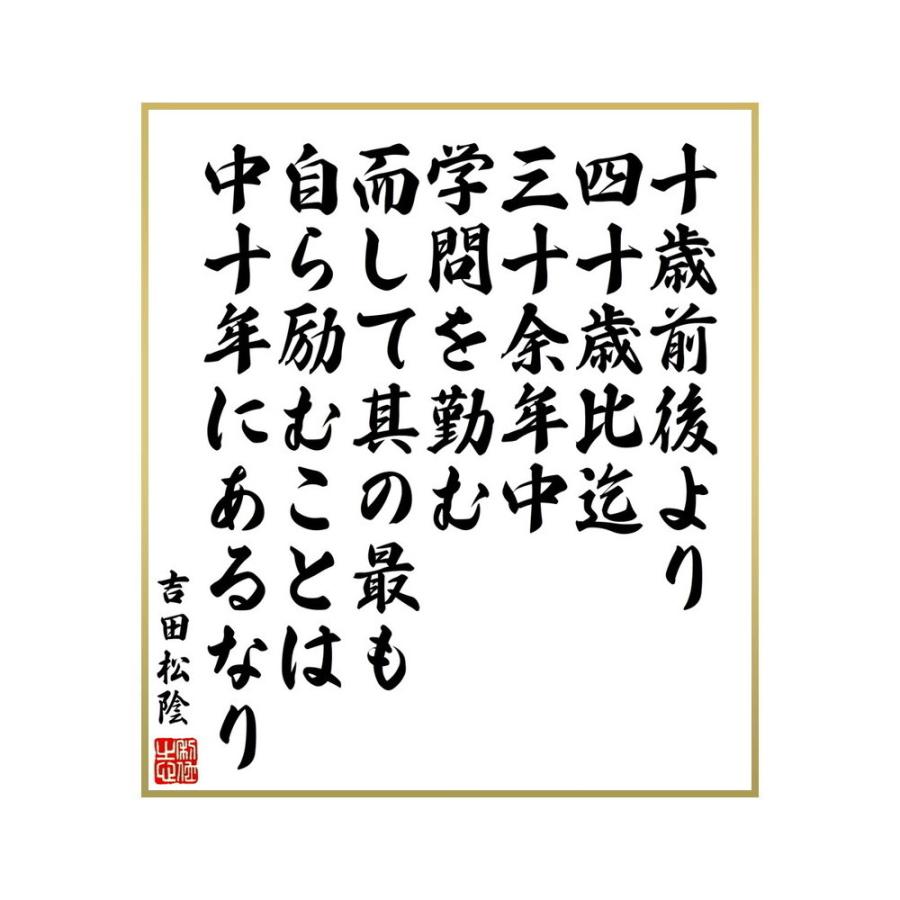 十歳前後より
四十歳比迄
三十余年中
学問を勤む
而して其の最も
自ら励むことは
中十年にあるなり
吉田松陰